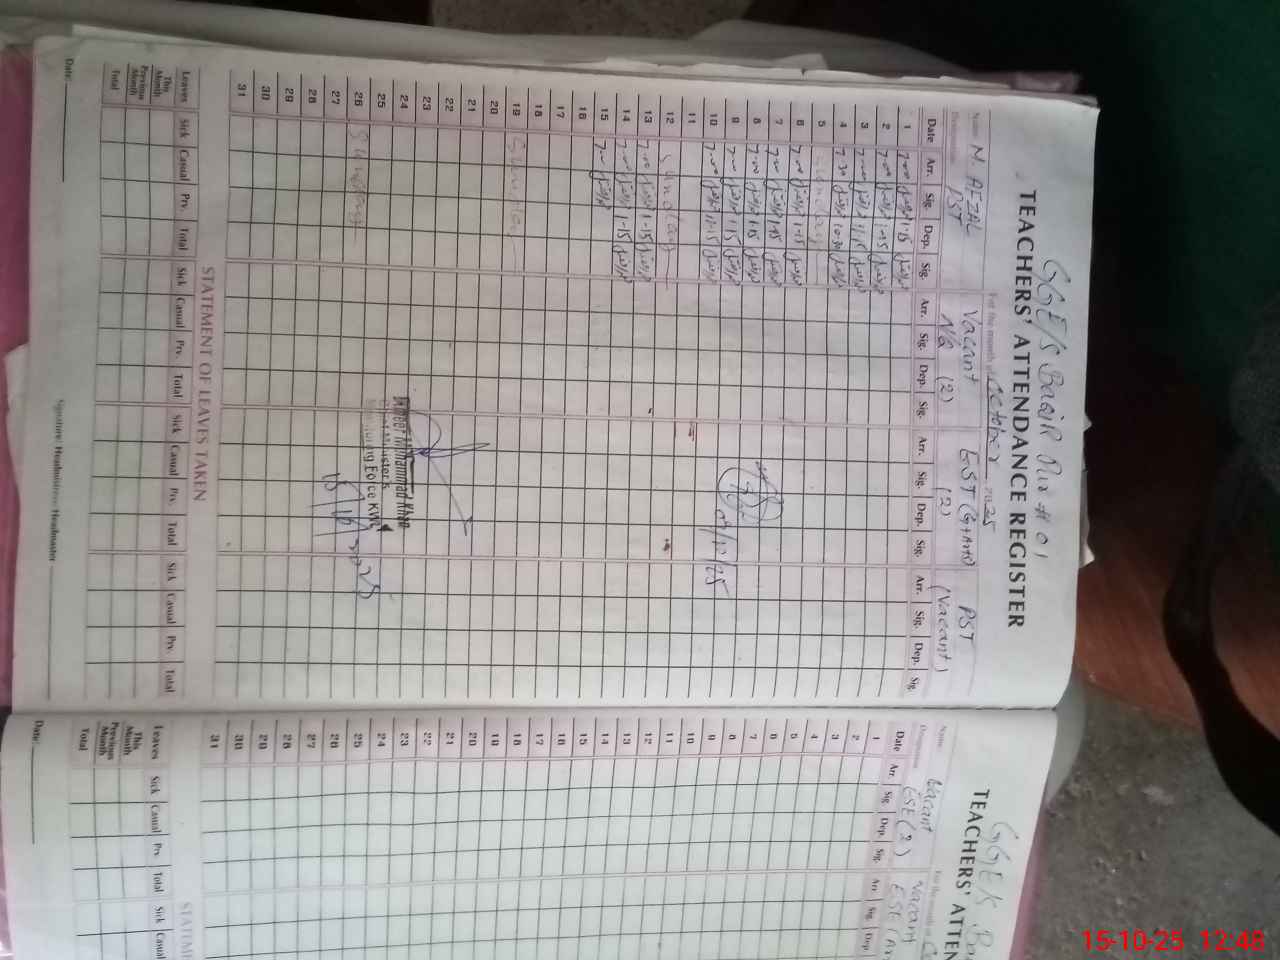 GGE/S BaqiR Pur # 01
TEACHERS' ATTENDANCE REGISTER
For the month of October 2025
Name M. AFZAL Vacant EST (G+Arts) PST
Designation PST N/Q (2) (2) (Vacant)
Date Arr. Sig. Dep. Sig. Arr. Sig. Dep. Sig. Arr. Sig. Dep. Sig. Arr. Sig. Dep. Sig.
1 7-00 1-15
2 7-00 1-15
3 7-00 11-15
4 7-30 10-30
5 Sunday
6 7-00 1-15
7 7-00 1-15
8 7-00 1-15
9 7-00 1-15
10 7-00 11-15
11
12 Sunday
13 7-00 1-15
14 7-00 1-15
15 7-00
16
17
18
19 Sunday
20
21
22
23
24
25
26 Sunday
27
28
29
30
31
09/10/25
Muhammad Khan
Chief Minister's
Monitoring Force
15/10/2025
STATEMENT OF LEAVES TAKEN
Leaves Sick Casual Prv. Total Sick Casual Prv. Total Sick Casual Prv. Total Sick Casual Prv. Total
This Month
Previous Month
Total
Date: Signature: Headmistress/Headmaster
GGE/S Ba
TEACHERS' ATTEN
For the month of
Name Vacant Vacant
Designation ESE (2) ESE (Ar
Date Arr. Sig. Dep. Sig. Arr Sig. Dep
1
2
3
4
5
6
7
8
9
10
11
12
13
14
15
16
17
18
19
20
21
22
23
24
25
26
27
28
29
30
31
STATEME
Leaves Sick Casual Prv. Total Sick Casual
This Month
Previous Month
Total
Date:
15-10-25 12:48